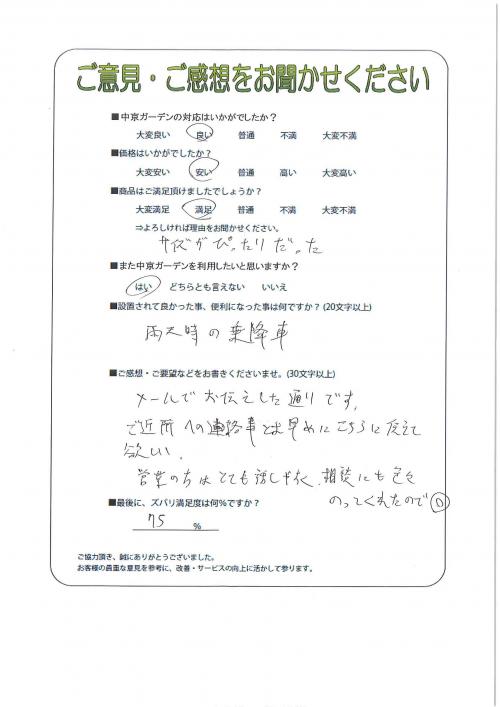 ご意見・ご感想をお聞かせください
■中京ガーデンの対応はいかがでしたか？
大変良い 良い 普通 不満 大変不満
■価格はいかがでしたか？
大変安い 安い 普通 高い 大変高い
■商品はご満足頂けましたでしょうか？
大変満足 満足 普通 不満 大変不満
⇒よろしければ理由をお聞かせください。
サイズがぴったりだった
■また中京ガーデンを利用したいと思いますか？
はい どちらとも言えない いいえ
■設置されて良かった事、便利になった事は何ですか？(20文字以上)
雨天時の乗降車
■ご感想・ご要望などをお書きくださいませ。(30文字以上)
メールでお伝えした通りです。
ご近所への連絡事とは早めにこちらに伝えて
欲しい。
営業の方はとても話しやすく、相談にも色々
のってくれたので
■最後に、ズバリ満足度は何％ですか？
75 %
ご協力頂き、誠にありがとうございました。
お客様の貴重な意見を参考に、改善・サービスの向上に活かして参ります。